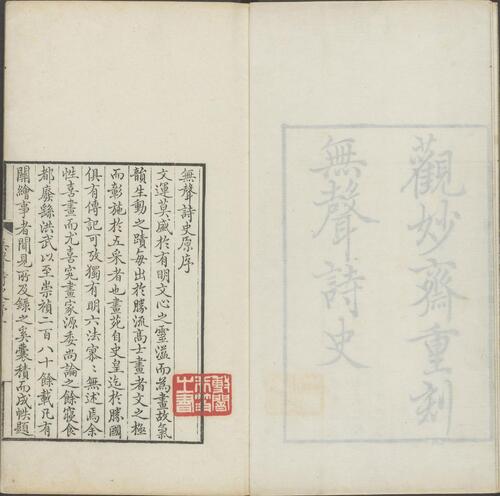 觀妙齋重刻
無聲詩史
無聲詩史原序
文運莫盛於有明文心之靈溢而為畫故氣
韻生動之蹟每出於勝流高士畫者文之極
而彰施於五采者也畫苑自史皇迄於勝國
俱有傳記可攷獨有明六法寥〻無述焉余
性喜畫而尤喜究畫家源委尚論之餘寢食
都廢繇洪武以至崇禎二百八十餘載凡有
關繪事者聞見所及錄之奚囊積而成帙題